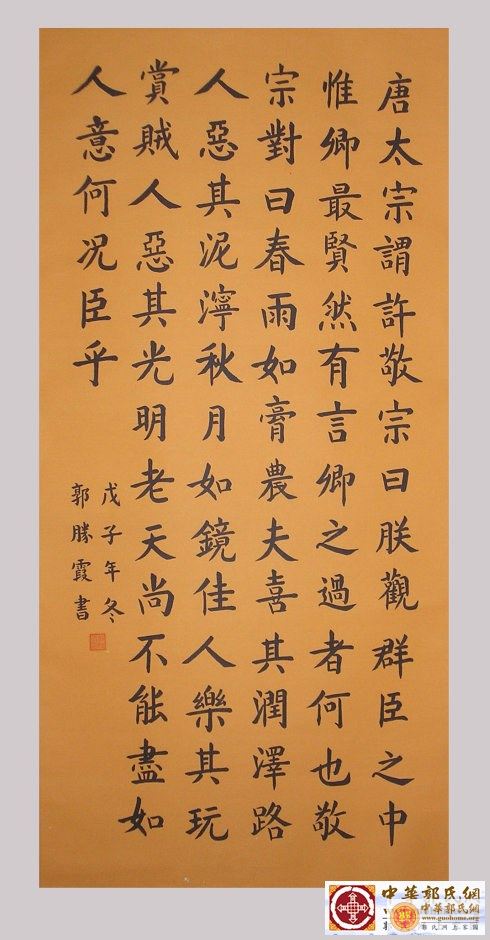 唐太宗謂許敬宗曰朕觀群臣之中
惟卿最賢然有言卿之過者何也敬
宗對曰春雨如膏農夫喜其潤澤路
人惡其泥濘秋月如鏡佳人樂其玩
賞賊人惡其光明老天尚不能盡如
人意何况臣乎
戊子年冬
郭勝霞書
中華郭氏網
中華郭氏網
www.guohome.org